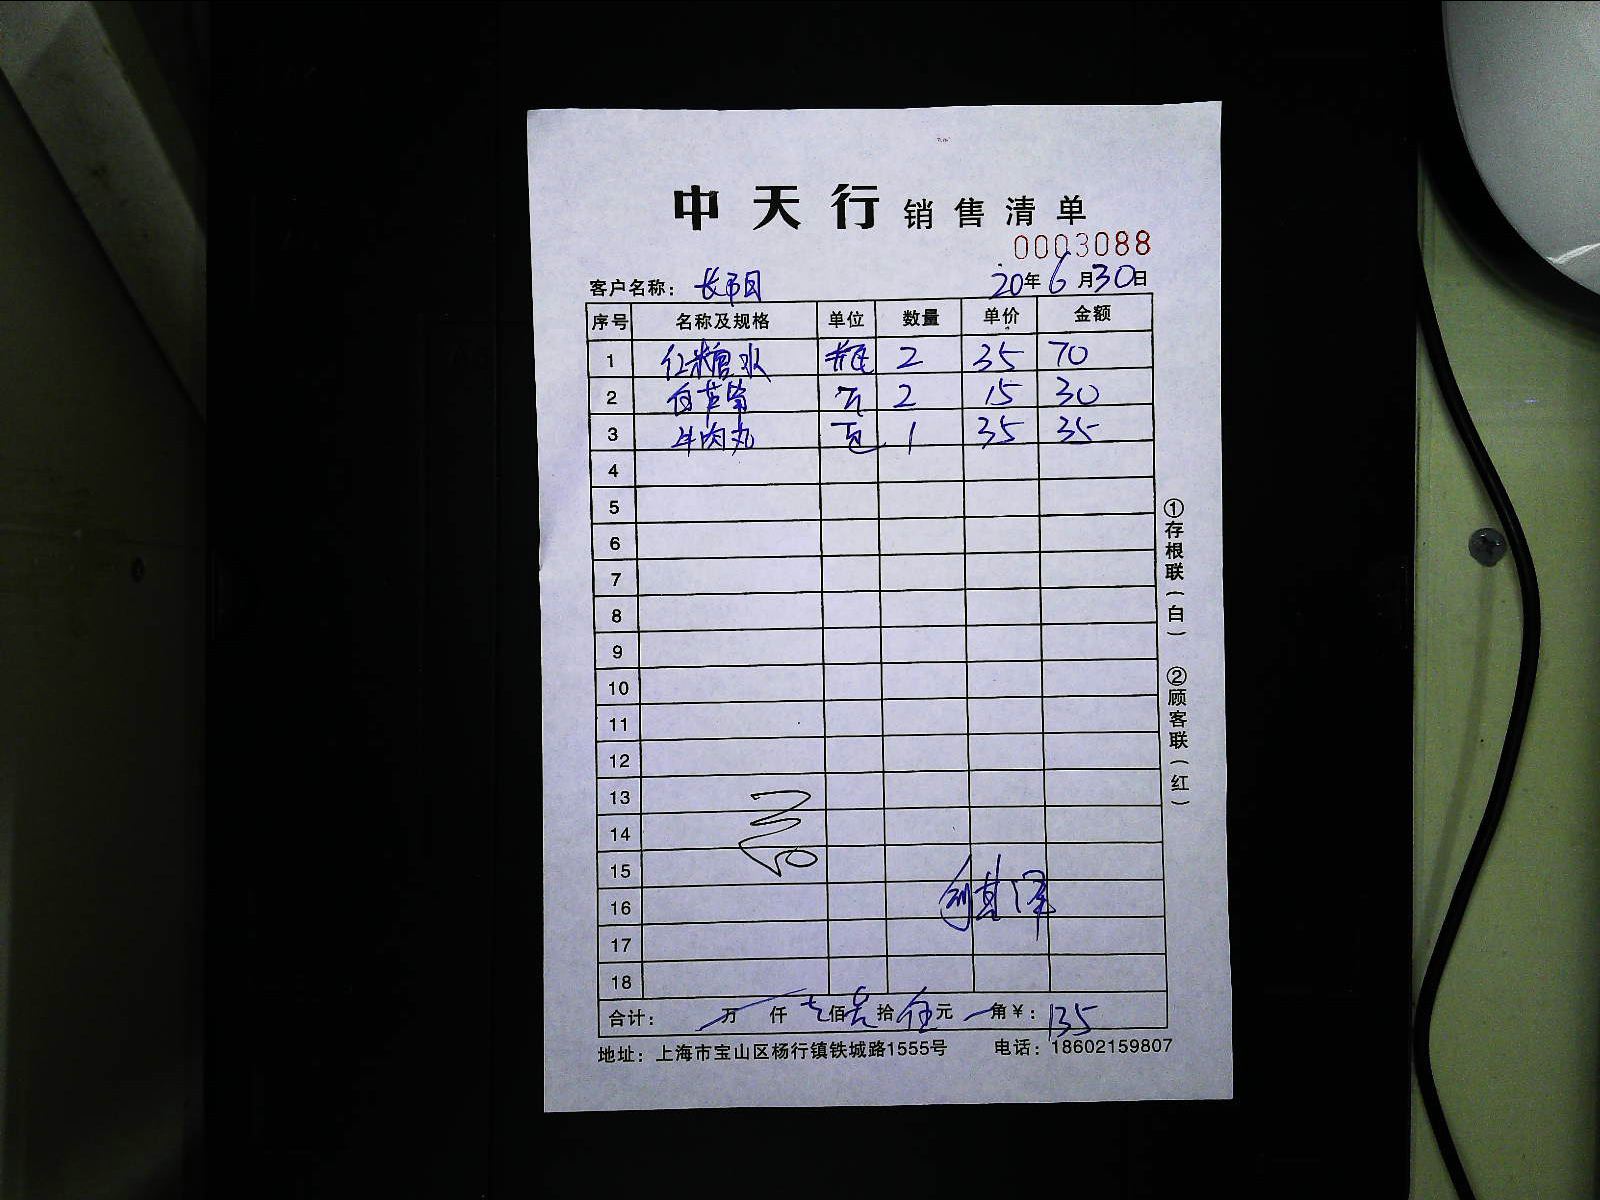 中天行 销售清单
0003088
客户名称： 20年6月30日
序号 名称及规格 单位 数量 单价 金额
1 红糖水 瓶 2 35 70
2 白芦笋 2 15 30
3 牛肉丸 包 1 35 35
4
5
6
7
8
9
10
11
12
13
14
15
16
17
18
合计： 万 仟 佰 拾 伍元 角￥：135
地址：上海市宝山区杨行镇铁城路1555号 电话：18602159807
①存根联（白）
②顾客联（红）